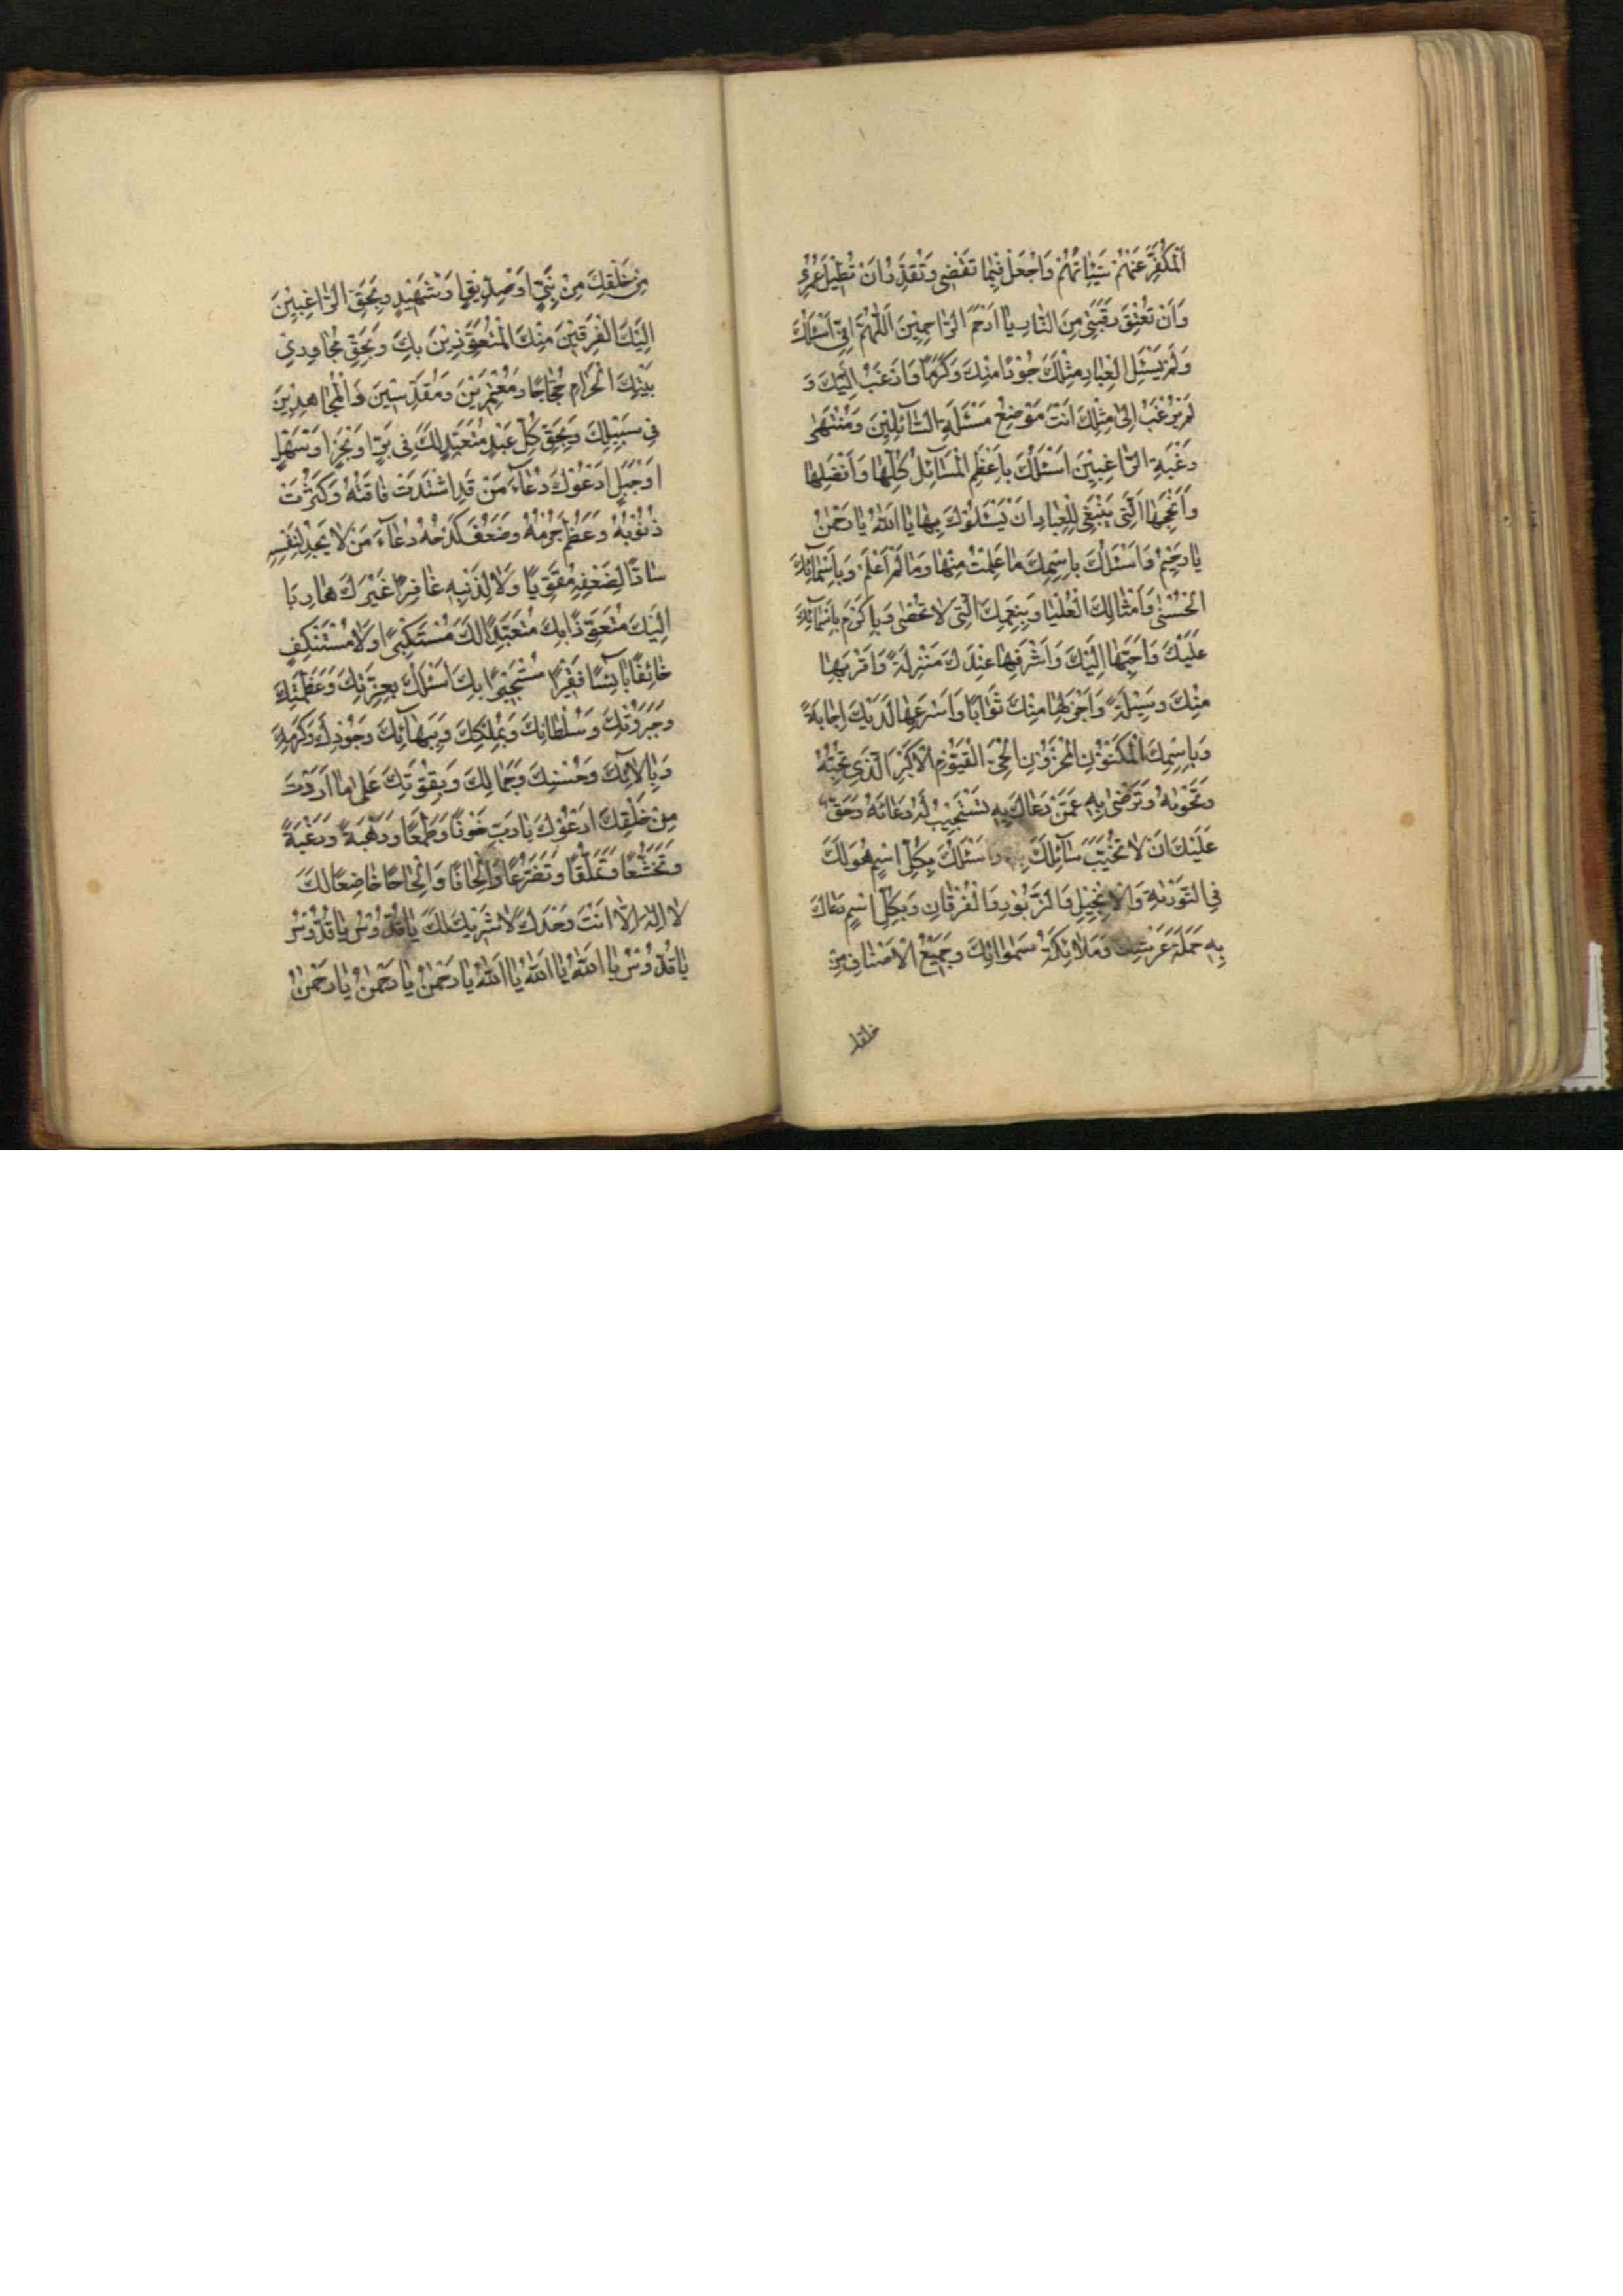 اَلْمُكَفَّرِ عَنْهُمْ سَيِّئَاتُهُمْ وَاجْعَلْ فِيمَا تَقْضِي وَتُقَدِّرُ اَنْ تُطِيلَ عُمُرِي
وَاَنْ تُعْتِقَ رَقَبَتِي مِنَ النَّارِ يَا اَرْحَمَ الرَّاحِمِينَ اَللّٰهُمَّ اِنِّي اَسْئَلُكَ
وَلَمْ يَسْئَلِ الْعِبَادُ مِثْلَكَ جُودًا مِنْكَ وَكَرَمًا وَاَرْغَبُ اِلَيْكَ وَ
لَمْ يُرْغَبْ اِلٰى مِثْلِكَ اَنْتَ مَوْضِعُ مَسْئَلَةِ السَّائِلِينَ وَمُنْتَهٰى
رَغْبَةِ الرَّاغِبِينَ اَسْئَلُكَ بِاَعْظَمِ الْمَسَآئِلِ كُلِّهَا وَاَفْضَلِهَا
وَاَنْجَحِهَا الَّتِي يَنْبَغِي لِلْعِبَادِ اَنْ يَسْئَلُوكَ بِهَا يَا اَللّٰهُ يَا رَحْمٰنُ
يَا رَحِيمُ وَاَسْئَلُكَ بِاسْمِكَ مَا عَلِمْتُ مِنْهَا وَمَا لَمْ اَعْلَمْ وَبِاَسْمَآئِكَ
الْحُسْنٰى وَاَمْثَالِكَ الْعُلْيَا وَبِنِعَمِكَ الَّتِي لَا تُحْصٰى وَبِاَكْرَمِ اَسْمَآئِكَ
عَلَيْكَ وَاَحَبِّهَا اِلَيْكَ وَاَشْرَفِهَا عِنْدَكَ مَنْزِلَةً وَاَقْرَبِهَا
مِنْكَ وَسِيلَةً وَاَجْزَلِهَا مِنْكَ ثَوَابًا وَاَسْرَعِهَا لَدَيْكَ اِجَابَةً
وَبِاسْمِكَ الْمَكْنُونِ الْمَخْزُونِ الْحَيِّ الْقَيُّومِ الْاَكْبَرِ الَّذِي تُحِبُّهُ
وَتَهْوَاهُ وَتَرْضٰى بِهِ عَمَّنْ دَعَاكَ بِهِ تَسْتَجِيبُ لَهُ دُعَائَهُ وَحَقٌّ
عَلَيْكَ اَنْ لَا تُخَيِّبَ سَآئِلَكَ بِهِ وَاَسْئَلُكَ بِكُلِّ اسْمٍ هُوَ لَكَ
فِي التَّوْرٰيةِ وَالْاِنْجِيلِ وَالزَّبُورِ وَالْفُرْقَانِ وَبِكُلِّ اسْمٍ دَعَاكَ
بِهِ حَمَلَةُ عَرْشِكَ وَمَلَائِكَةُ سَمٰوَاتِكَ وَجَمِيعُ الْاَصْنَافِ مِنْ
خلقك
مِنْ خَلْقِكَ مِنْ نَبِيٍّ اَوْ صِدِّيقٍ اَوْ شَهِيدٍ وَبِحَقِّ الرَّاغِبِينَ
اِلَيْكَ الْفَرِقِينَ مِنْكَ الْمُتَعَوِّذِينَ بِكَ وَبِحَقِّ مُجَاوِرِي
بَيْتِكَ الْحَرَامِ حُجَّاجًا وَمُعْتَمِرِينَ وَمُقَدِّسِينَ وَالْمُجَاهِدِينَ
فِي سَبِيلِكَ وَبِحَقِّ كُلِّ عَبْدٍ مُتَعَبِّدٍ لَكَ فِي بَرٍّ اَوْ بَحْرٍ اَوْ سَهْلٍ
اَوْ جَبَلٍ اَدْعُوكَ دُعَآءَ مَنْ قَدِ اشْتَدَّتْ فَاقَتُهُ وَكَثُرَتْ
ذُنُوبُهُ وَعَظُمَ جُرْمُهُ وَضَعُفَ كَدْحُهُ دُعَآءَ مَنْ لَا يَجِدُ لِنَفْسِهِ
سَادًّا لِضَعْفِهِ مُقَوِّيًا وَلَا لِذَنْبِهِ غَافِرًا غَيْرَكَ هَارِبًا
اِلَيْكَ مُتَعَوِّذًا بِكَ مُتَعَبِّدًا لَكَ مُسْتَكْبِرًا وَلَا مُسْتَنْكِفٍ
خَائِفًا بَآئِسًا فَقِيرًا مُسْتَجِيرًا بِكَ اَسْئَلُكَ بِعِزَّتِكَ وَعَظَمَتِكَ
وَجَبَرُوتِكَ وَسُلْطَانِكَ وَبِمُلْكِكَ وَبِبَهَآئِكَ وَجُودِكَ وَكَرَمِكَ
وَبِآلَائِكَ وَحُسْنِكَ وَجَمَالِكَ وَبِقُوَّتِكَ عَلٰى مَا اَرَدْتَ
مِنْ خَلْقِكَ اَدْعُوكَ يَا رَبِّ خَوْفًا وَطَمَعًا وَرَهْبَةً وَرَغْبَةً
وَتَخَشُّعًا وَتَمَلُّقًا وَتَضَرُّعًا وَاِلْحَافًا وَاِلْحَاحًا خَاضِعًا لَكَ
لَا اِلٰهَ اِلَّا اَنْتَ وَحْدَكَ لَا شَرِيكَ لَكَ يَا قُدُّوسُ يَا قُدُّوسُ
يَا قُدُّوسُ يَا اَللّٰهُ يَا اَللّٰهُ يَا اَللّٰهُ يَا رَحْمٰنُ يَا رَحْمٰنُ يَا رَحْمٰنُ